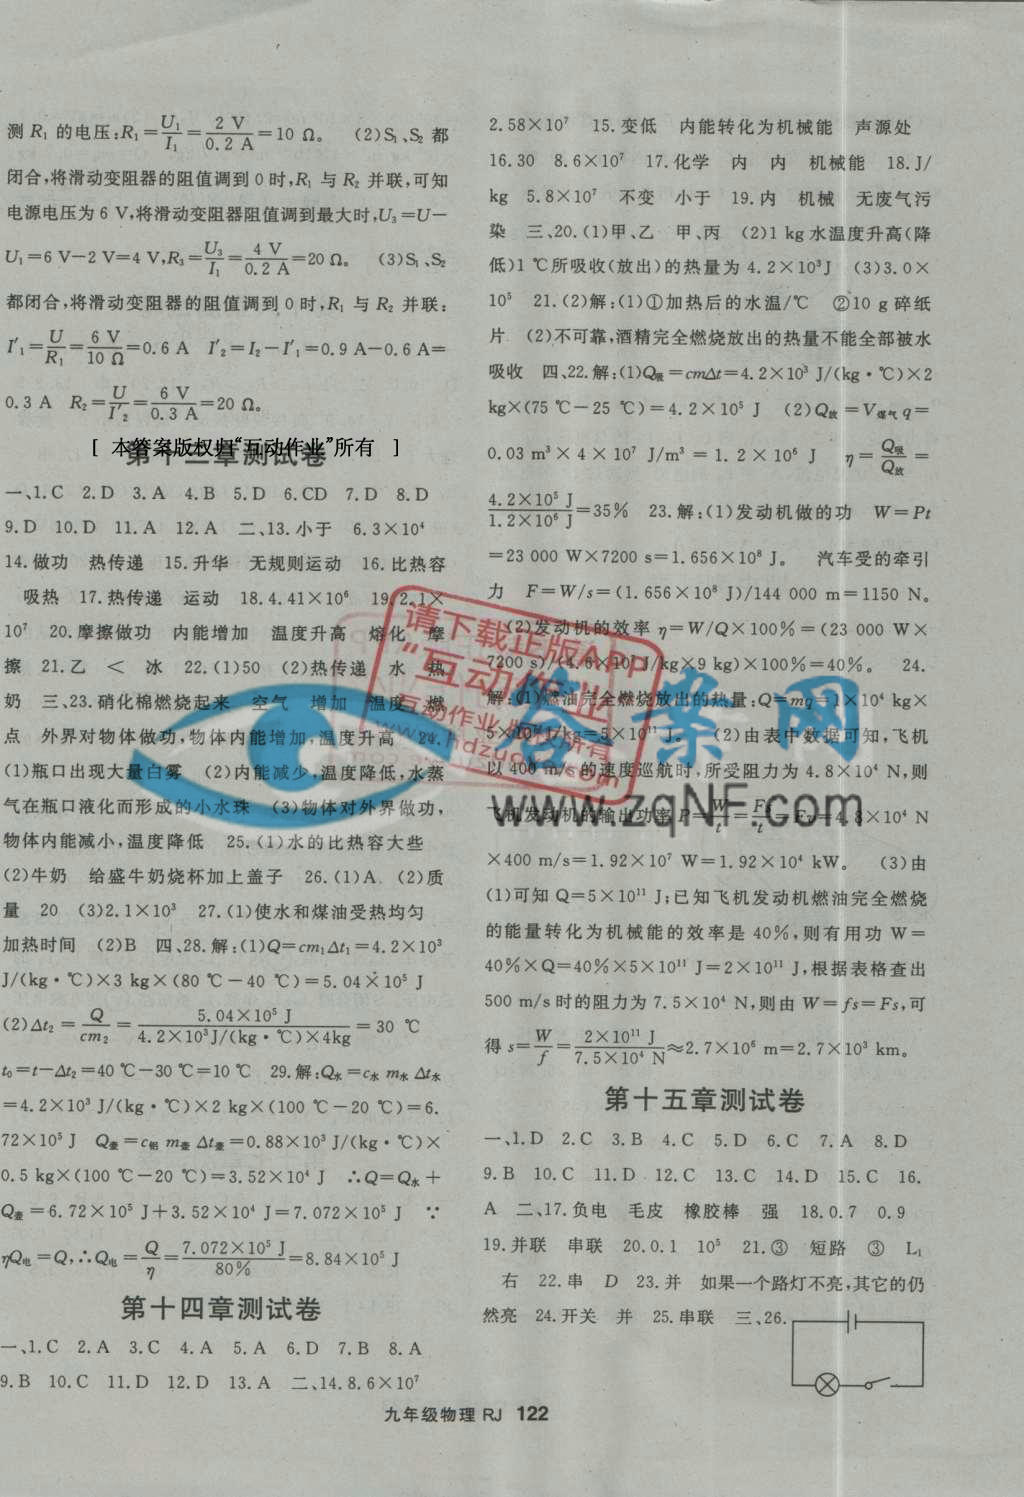 测 R₁ 的电压:R₁=U₁/I₁=2 V/0.2 A=10 Ω。 (2)S₁、S₂ 都
闭合,将滑动变阻器的阻值调到 0 时,R₁ 与 R₂ 并联,可知
电源电压为 6 V,将滑动变阻器阻值调到最大时,U₃=U-
U₁=6 V-2 V=4 V,R₃=U₃/I₁=4 V/0.2 A=20 Ω。 (3)S₁、S₂
都闭合,将滑动变阻器的阻值调到 0 时,R₁ 与 R₂ 并联:
I′₁=U/R₁=6 V/10 Ω=0.6 A I′₂=I₂-I′₁=0.9 A-0.6 A=
0.3 A R₂=U/I′₂=6 V/0.3 A=20 Ω。
[ 本答案版权归“互动作业”所有 ]
第十三章测试卷
一、1.C 2.D 3.A 4.B 5.D 6.CD 7.D 8.D
9.D 10.D 11.A 12.A 二、13.小于 6.3×10⁴
14.做功 热传递 15.升华 无规则运动 16.比热容
吸热 17.热传递 运动 18.4.41×10⁶ 19.2.1×
10⁷ 20.摩擦做功 内能增加 温度升高 熔化 摩
擦 21.乙 < 冰 22.(1)50 (2)热传递 水 热
奶 三、23.硝化棉燃烧起来 空气 增加 温度 燃
点 外界对物体做功,物体内能增加,温度升高 24.
(1)瓶口出现大量白雾 (2)内能减少,温度降低,水蒸
气在瓶口液化而形成的小水珠 (3)物体对外界做功,
物体内能减小,温度降低 25.(1)水的比热容大些
(2)牛奶 给盛牛奶烧杯加上盖子 26.(1)A (2)质
量 20 (3)2.1×10³ 27.(1)使水和煤油受热均匀
加热时间 (2)B 四、28.解:(1)Q=cm₁Δt₁=4.2×10³
J/(kg·℃)×3 kg×(80 ℃-40 ℃)=5.04×10⁵ J
(2)Δt₂=Q/cm₂=5.04×10⁵ J/4.2×10³J/(kg·℃)×4kg=30 ℃
t₀=t-Δt₂=40 ℃-30 ℃=10 ℃ 29.解:Q水=c水 m水 Δt水
=4.2×10³ J/(kg·℃)×2 kg×(100 ℃-20 ℃)=6.
72×10⁵ J Q壶=c铝 m壶 Δt壶=0.88×10³ J/(kg·℃)×
0.5 kg×(100 ℃-20 ℃)=3.52×10⁴ J ∴Q=Q水+
Q壶=6.72×10⁵ J+3.52×10⁴ J=7.072×10⁵ J ∵
ηQ电=Q,∴Q电=Q/η=7.072×10⁵ J/80%=8.84×10⁵ J
第十四章测试卷
一、1.C 2.A 3.C 4.A 5.A 6.D 7.B 8.A
9.B 10.C 11.D 12.D 13.A 二、14.8.6×10⁷
2.58×10⁷ 15.变低 内能转化为机械能 声源处
16.30 8.6×10⁷ 17.化学 内 内 机械能 18.J/
kg 5.8×10⁷ 不变 小于 19.内 机械 无废气污
染 三、20.(1)甲、乙 甲、丙 (2)1 kg水温度升高(降
低)1 ℃所吸收(放出)的热量为 4.2×10³J (3)3.0×
10⁵ 21.(2)解:(1)①加热后的水温/℃ ②10 g 碎纸
片 (2)不可靠,酒精完全燃烧放出的热量不能全部被水
吸收 四、22.解:(1)Q吸=cmΔt=4.2×10³ J/(kg·℃)×2
kg×(75 ℃-25 ℃)=4.2×10⁵ J (2)Q放=V煤气q=
0.03 m³×4×10⁷ J/m³=1.2×10⁶ J η=Q吸/Q放=
4.2×10⁵ J/1.2×10⁶ J=35% 23.解:(1)发动机做的功 W=Pt
=23 000 W×7200 s=1.656×10⁸ J。 汽车受的牵引
力 F=W/s=(1.656×10⁸ J)/144 000 m=1150 N。
(2)发动机的效率 η=W/Q×100%=(23 000 W×
7200 s)/(4.6×10⁷J/kg×9 kg)×100%=40%。 24.
解:(1)燃油完全燃烧放出的热量:Q=mq=1×10⁴ kg×
5×10⁷J/kg=5×10¹¹J。 (2)由表中数据可知,飞机
以 400 m/s 的速度巡航时,所受阻力为 4.8×10⁴ N,则
飞机发动机的输出功率 P=W/t=Fs/t=Fv=4.8×10⁴ N
×400 m/s=1.92×10⁷ W=1.92×10⁴ kW。 (3)由
(1)可知 Q=5×10¹¹ J;已知飞机发动机燃油完全燃烧
的能量转化为机械能的效率是 40%,则有用功 W=
40%×Q=40%×5×10¹¹ J=2×10¹¹ J,根据表格查出
500 m/s 时的阻力为 7.5×10⁴ N,则由 W=fs=Fs,可
得 s=W/f=2×10¹¹ J/7.5×10⁴ N≈2.7×10⁶ m=2.7×10³ km。
第十五章测试卷
一、1.D 2.C 3.B 4.C 5.D 6.C 7.A 8.D
9.B 10.C 11.D 12.C 13.C 14.D 15.C 16.
A 二、17.负电 毛皮 橡胶棒 强 18.0.7 0.9
19.并联 串联 20.0.1 10⁵ 21.③ 短路 ③ L₁
右 22.串 D 23.并 如果一个路灯不亮,其它的仍
然亮 24.开关 并 25.串联 三、26.
九年级物理 RJ 122
请下载正版APP
“互动作业”
互动作业 版权所有
答案网
www.zqNF.com